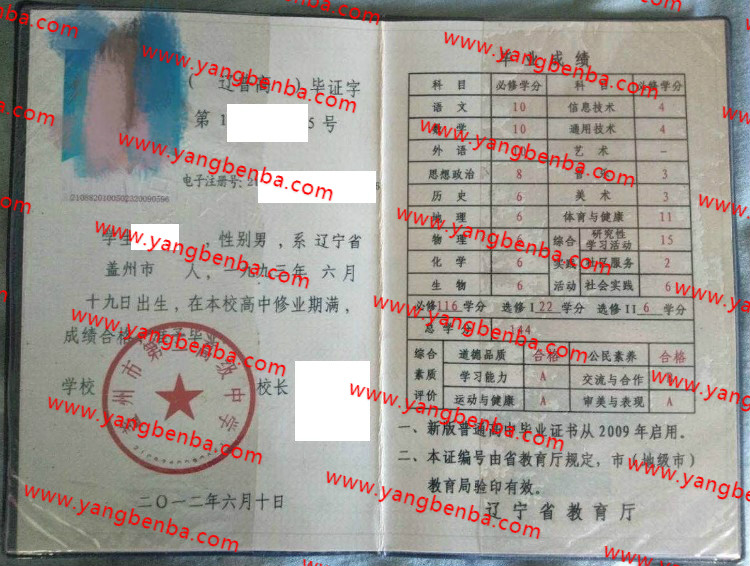 (辽普高)毕证字
第1 5号
电子注册号:2
21088201005023200905​96
学生 ,性别男,系 辽宁省
盖州市 人,一九九三年 六月
十九日出生,在本校高中修业期满,
成绩合格,准予毕业。
学校 校长
州市第二高级中学
二〇一二年六月十日
毕业成绩
科目 必修学分 科目 必修学分
语文 10 信息技术 4
数学 10 通用技术 4
外语 艺术 —
思想政治 8 音乐 3
历史 6 美术 3
地理 6 体育与健康 11
物理 6 综合实践活动 研究性学习活动 15
化学 6 社区服务 2
生物 6 社会实践 6
必修116学分 选修I 22 学分 选修II 6 学分
总学分 144
综合素质评价 道德品质 合格 公民素养 合格
学习能力 A 交流与合作
运动与健康 A 审美与表现 A
一、新版普通高中毕业证书从2009年启用。
二、本证编号由省教育厅规定,市(地级市)
教育局验印有效。
辽宁省教育厅
www.yangbenba.com